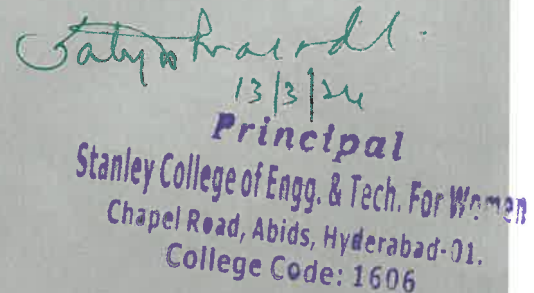 13/3/24
Principal
Stanley College of Engg. & Tech. For Women
Chapel Road, Abids, Hyderabad-01.
College Code: 1606